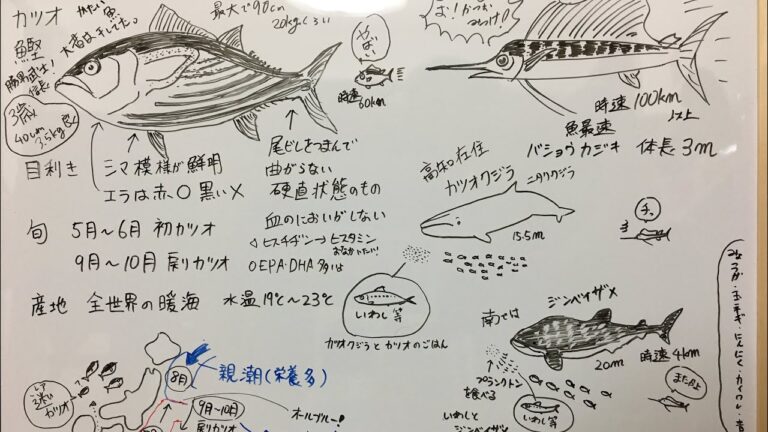 カツオ
鰹
かたい魚
大昔は干してた。
勝男武士!
信長!
3歳
40cm
3.5kg
最大で90cm
20kgくらい
時速
60km
かつお
時速100km
以上
魚最速
バショウカジキ 体長3m
目利き
シマ模様が鮮明
エラは赤〇 黒い×
尾ビレをつまんで
曲がらない
硬直状態のもの
血のにおいがしない
ヒスチヂン→ヒスタミン
おなかいたい
〇EPA・DHA 多い
旬 5月〜6月 初カツオ
9月〜10月 戻りカツオ
産地 全世界の暖海 水温19℃〜23℃
高知在住
カツオクジラ
ニタリクジラ
15.5m
いわし等
カツオクジラとカツオのごはん
チッ
南では
ジンベイザメ
20m
時速4km
プランクトン
を食べる
いわしと
ジンベイザメ
またかよ
みょうが・玉ネギ・にんにく・カイワレ・
レア
迷い
カツオ
8月
親潮(栄養多)
9月〜10月
戻りカツオ
オールブルー!